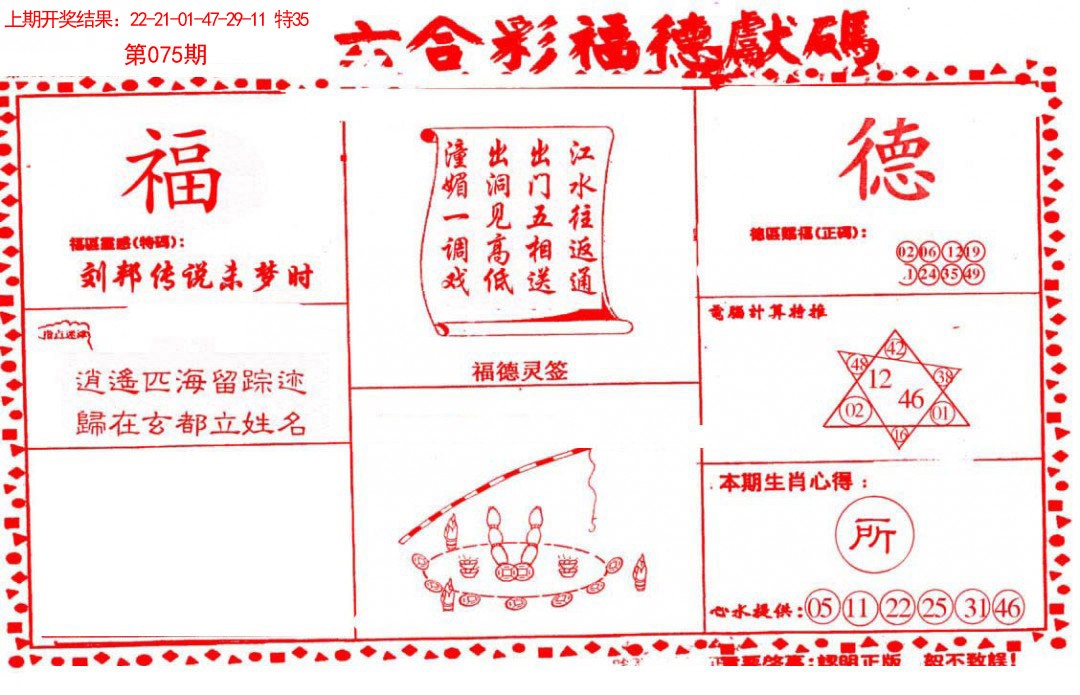 上期开奖结果：22-21-01-47-29-11 特35
第075期
六合彩福德獻碼
福
福區靈感(特碼)：
刘邦传说未梦时
逍遙匹海留踪迹
歸在玄都立姓名
江水往返通
出门五相送
出洞见高低
潼媚一调戏
福德灵签
德
德區賜福(正碼)：
02 06 12 19
24 35 49
電腦計算特推
42
48 12 38
46
02 01
16
本期生肖心得：
所
心水提供：05 11 22 25 31 46
認明正版